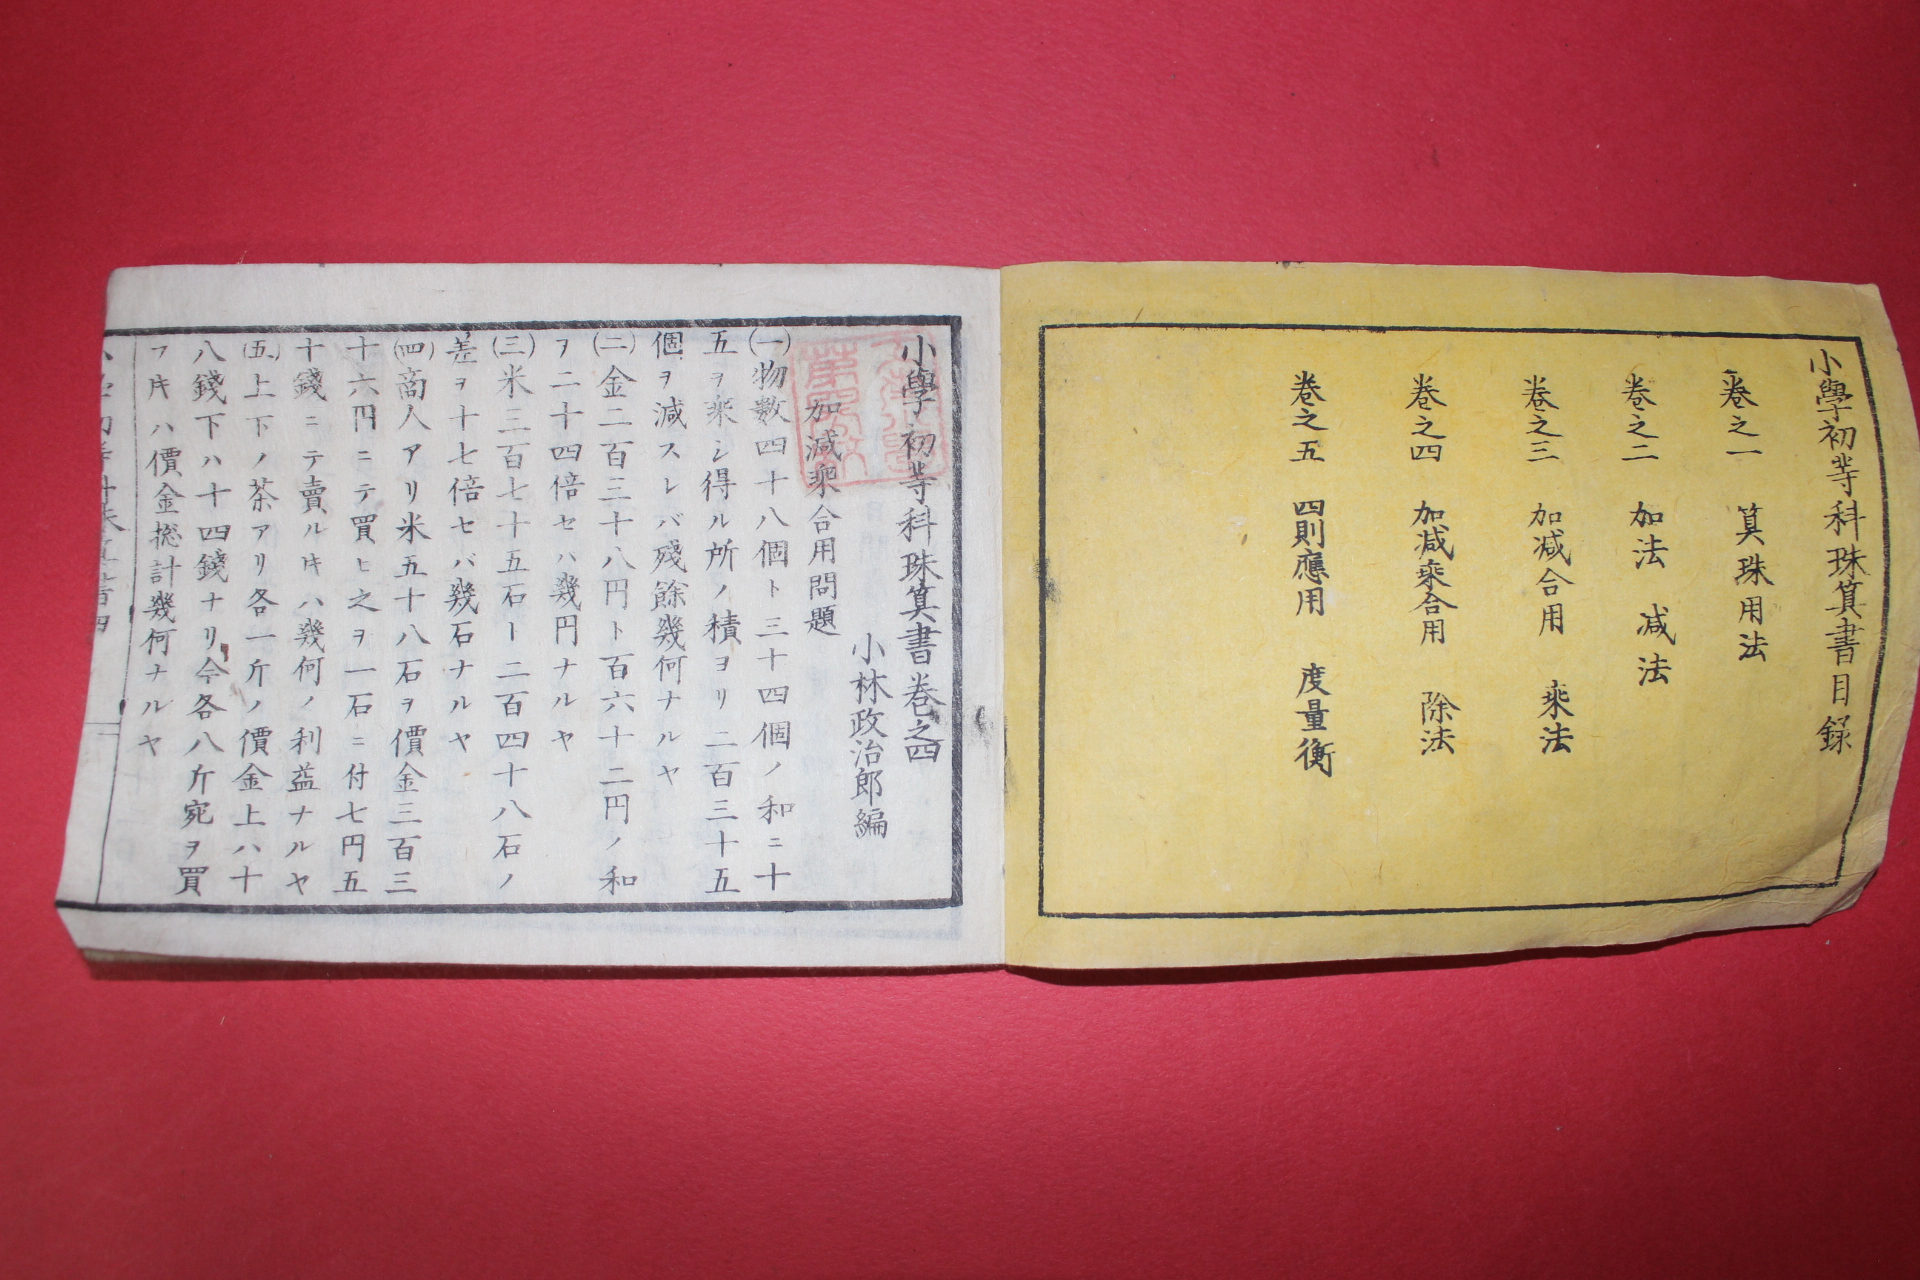 小學初等科珠算書目録
巻之一 算珠用法
巻之二 加法 減法
巻之三 加減合用 乗法
巻之四 加減乗合用 除法
巻之五 四則應用 度量衡
小學初等科珠算書巻之四
小林政治郎編
加減乗合用問題
(一)物數四十八個ト三十四個ノ和ニ十
五ヲ乗シ得ル所ノ積ヨリ二百三十五
個ヲ減スレバ殘餘幾何ナルヤ
(二)金二百三十八円ト百六十二円ノ和
ヲ二十四倍セハ幾円ナルヤ
(三)米三百七十五石ト二百四十八石ノ
差ヲ十七倍セバ幾石ナルヤ
(四)商人アリ米五十八石ヲ價金三百三
十六円ニテ買ヒ之ヲ一石ニ付七円五
十錢ニテ賣ル𪜈ハ幾何ノ利益ナルヤ
(五)上下ノ茶アリ各一斤ノ價金上ハ十
八錢下ハ十四錢ナリ今各八斤宛ヲ買
フ𪜈ハ價金搃計幾何ナルヤ